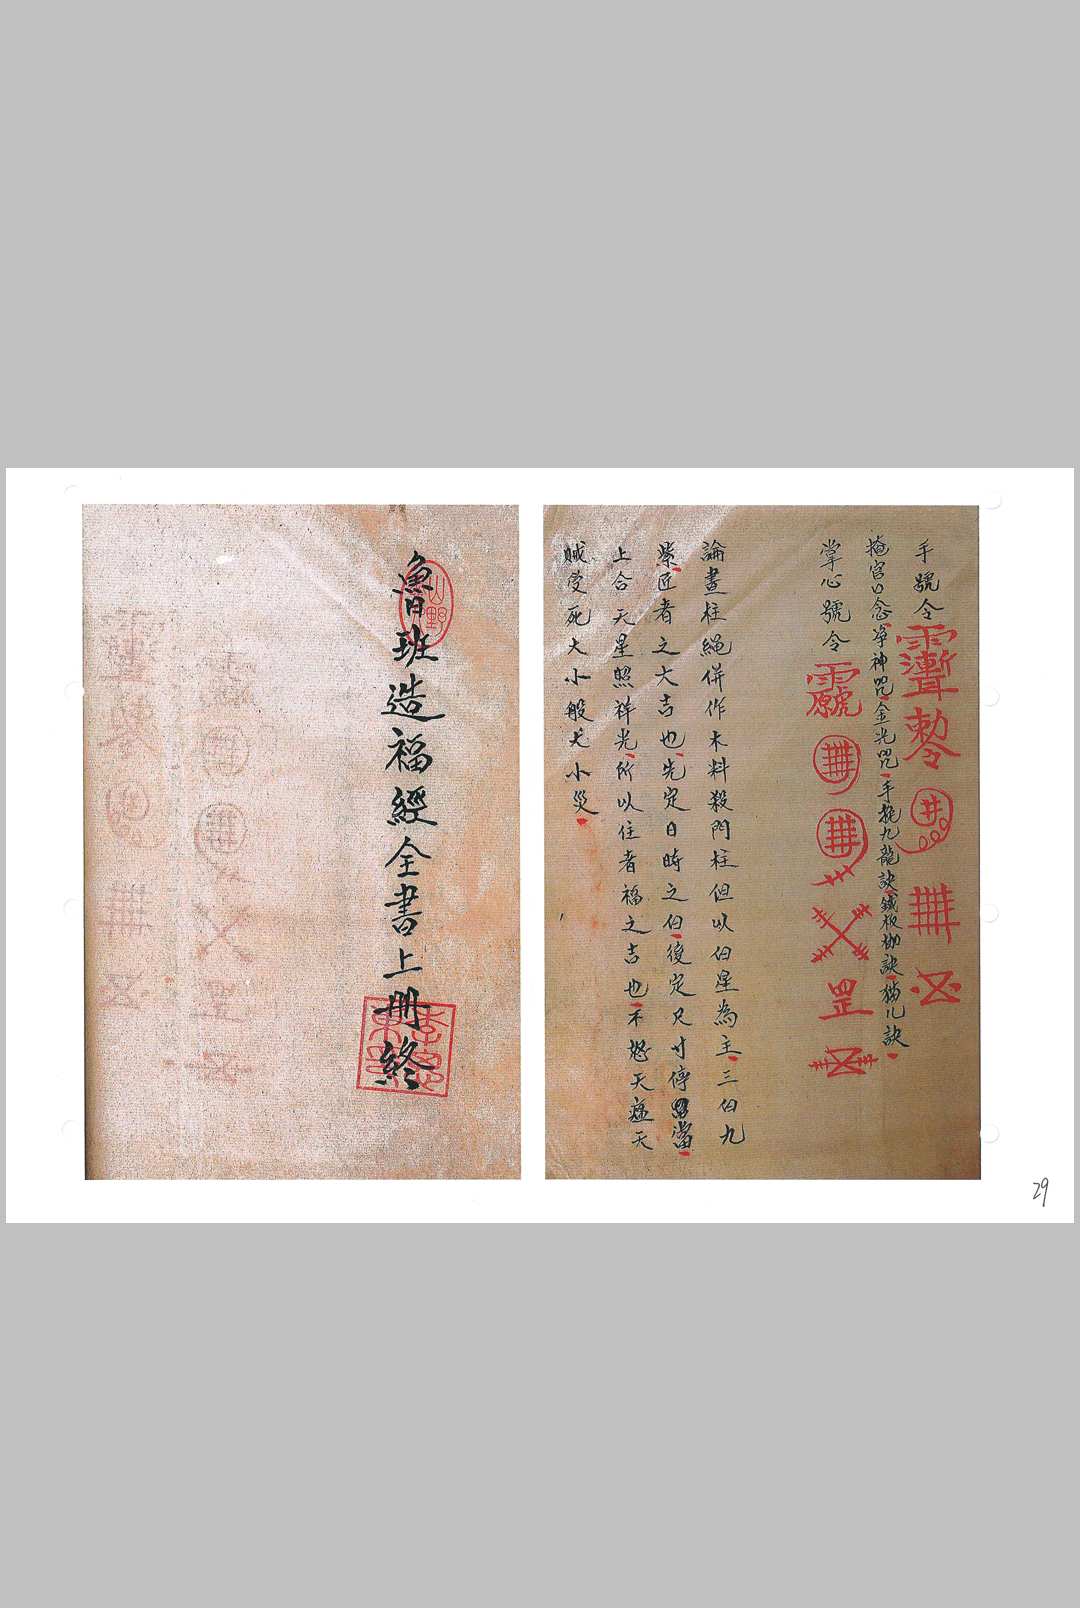 手號令 敕令
掩宮口念凈神咒金光咒手挽九龍訣鐵板枷訣貓儿訣
掌心號令 罡
論畫柱繩併作木料殺門柱但以白星為主三白九
紫匠者之大吉也先定日時之白後定尺寸停當
上合天星照祥光所以住者福之吉也不怒天瘟天
賊受死大小般大小災
魯班造福經全書上冊終
山野
29